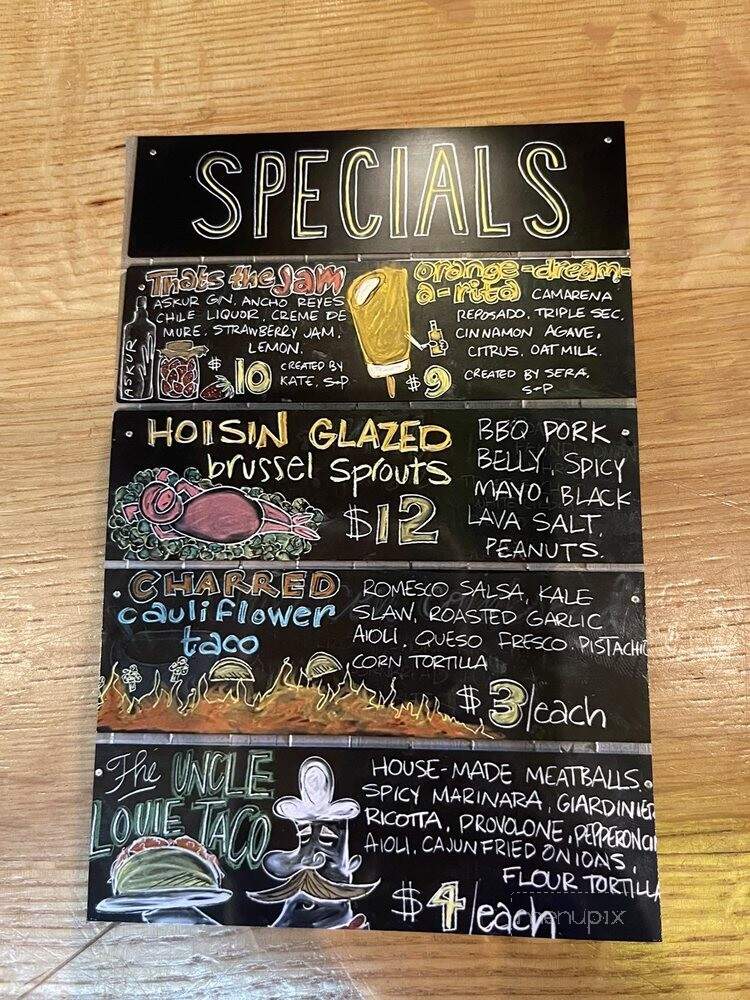 SPECIALS
Thats the Jam
ASKUR GIN, ANCHO REYES
CHILE LIQUOR, CREME DE
MURE, STRAWBERRY JAM,
LEMON.
ASKUR
$10
CREATED BY
KATE, S+P
orange-dream-
a-rita CAMARENA
REPOSADO, TRIPLE SEC,
CINNAMON AGAVE,
CITRUS, OAT MILK.
$9
CREATED BY SERA,
S+P
HOISIN GLAZED
brussel sprouts
$12
BBQ PORK
BELLY, SPICY
MAYO, BLACK
LAVA SALT,
PEANUTS.
CHARRED
cauliflower
taco
ROMESCO SALSA, KALE
SLAW, ROASTED GARLIC
AIOLI, QUESO FRESCO, PISTACHIO
CORN TORTILLA
$3/each
The UNCLE
LOUIE TACO
HOUSE-MADE MEATBALLS,
SPICY MARINARA, GIARDINIER
RICOTTA, PROVOLONE, PEPPERONCI
AIOLI, CAJUN FRIED ONIONS,
FLOUR TORTILLA
$4/each
menupix